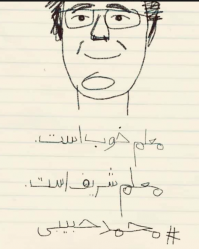 معلم خوب است.
معلم شریف است.
#محمد_حبیبی